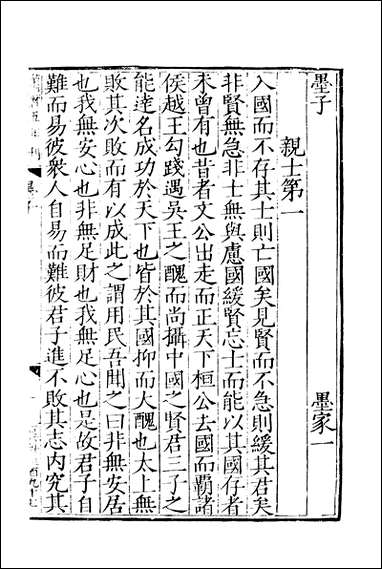 墨子　墨家一
親士第一
入國而不存其士則亡國矣見賢而不急則緩其君矣
非賢無急非士無與慮國緩賢忘士而能以其國存者
未曾有也昔者文公出走而正天下桓公去國而覇諸
侯越王勾踐遇吳王之醜而尚攝中國之賢君三子之
能達名成功於天下也皆於其國抑而大醜也太上無
敗其次敗而有以成此之謂用民吾聞之曰非無安居
也我無安心也非無足財也我無足心也是故君子自
難而易彼衆人自易而難彼君子進不敗其志内究其